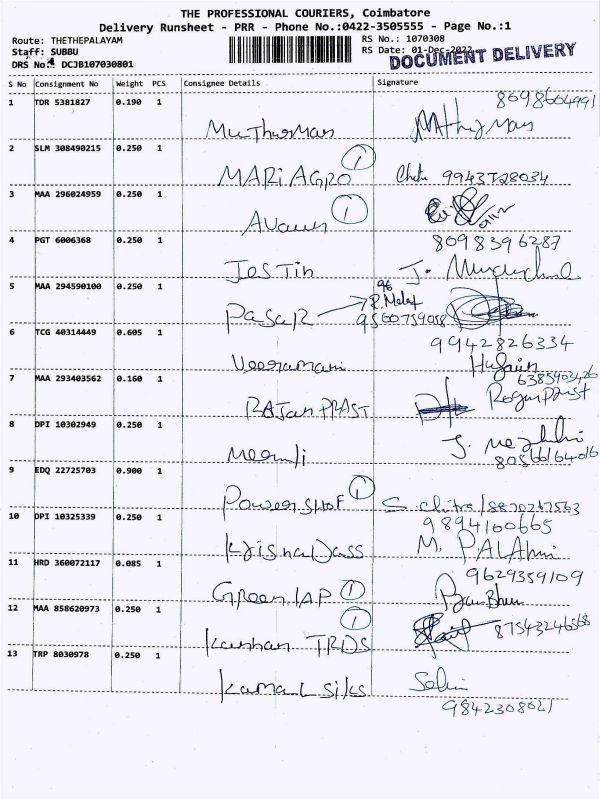 THE PROFESSIONAL COURIERS, Coimbatore
Delivery Runsheet - PRR - Phone No.:0422-3505555 - Page No.:1
Route: THETHEPALAYAM
RS No.: 1070308
Staff: SUBBU
RS Date: 01-Dec-2022
DOCUMENT DELIVERY
DRS No: DCJB107030801
S No Consignment No Weight PCS Consignee Details Signature
1 TDR 5381827 0.190 1
Muthuman
2 SLM 308490215 0.250 1
MARI AGRO 1 9943728034
3 MAA 296024959 0.250 1
1
4 PGT 6006368 0.250 1 8098396287
Jestin J.
5 MAA 294590100 0.250 1
Pasar 9560759058
6 TCG 40314449 0.605 1 9942826334
Veeramani
7 MAA 293403562 0.160 1
RAJan PRAST
8 DPI 10302949 0.250 1
J.
9 EDQ 22725703 0.900 1
Power SHOF 1 S. Chitra / 8870267563
10 DPI 10325339 0.250 1 9894100665
Krishna Dass M. PALAni
11 HRD 360072117 0.085 1 9629359109
Green IAP 1
12 MAA 858620973 0.250 1 1
TRDS
13 TRP 8030978 0.250 1
Kamal silks
9842308021